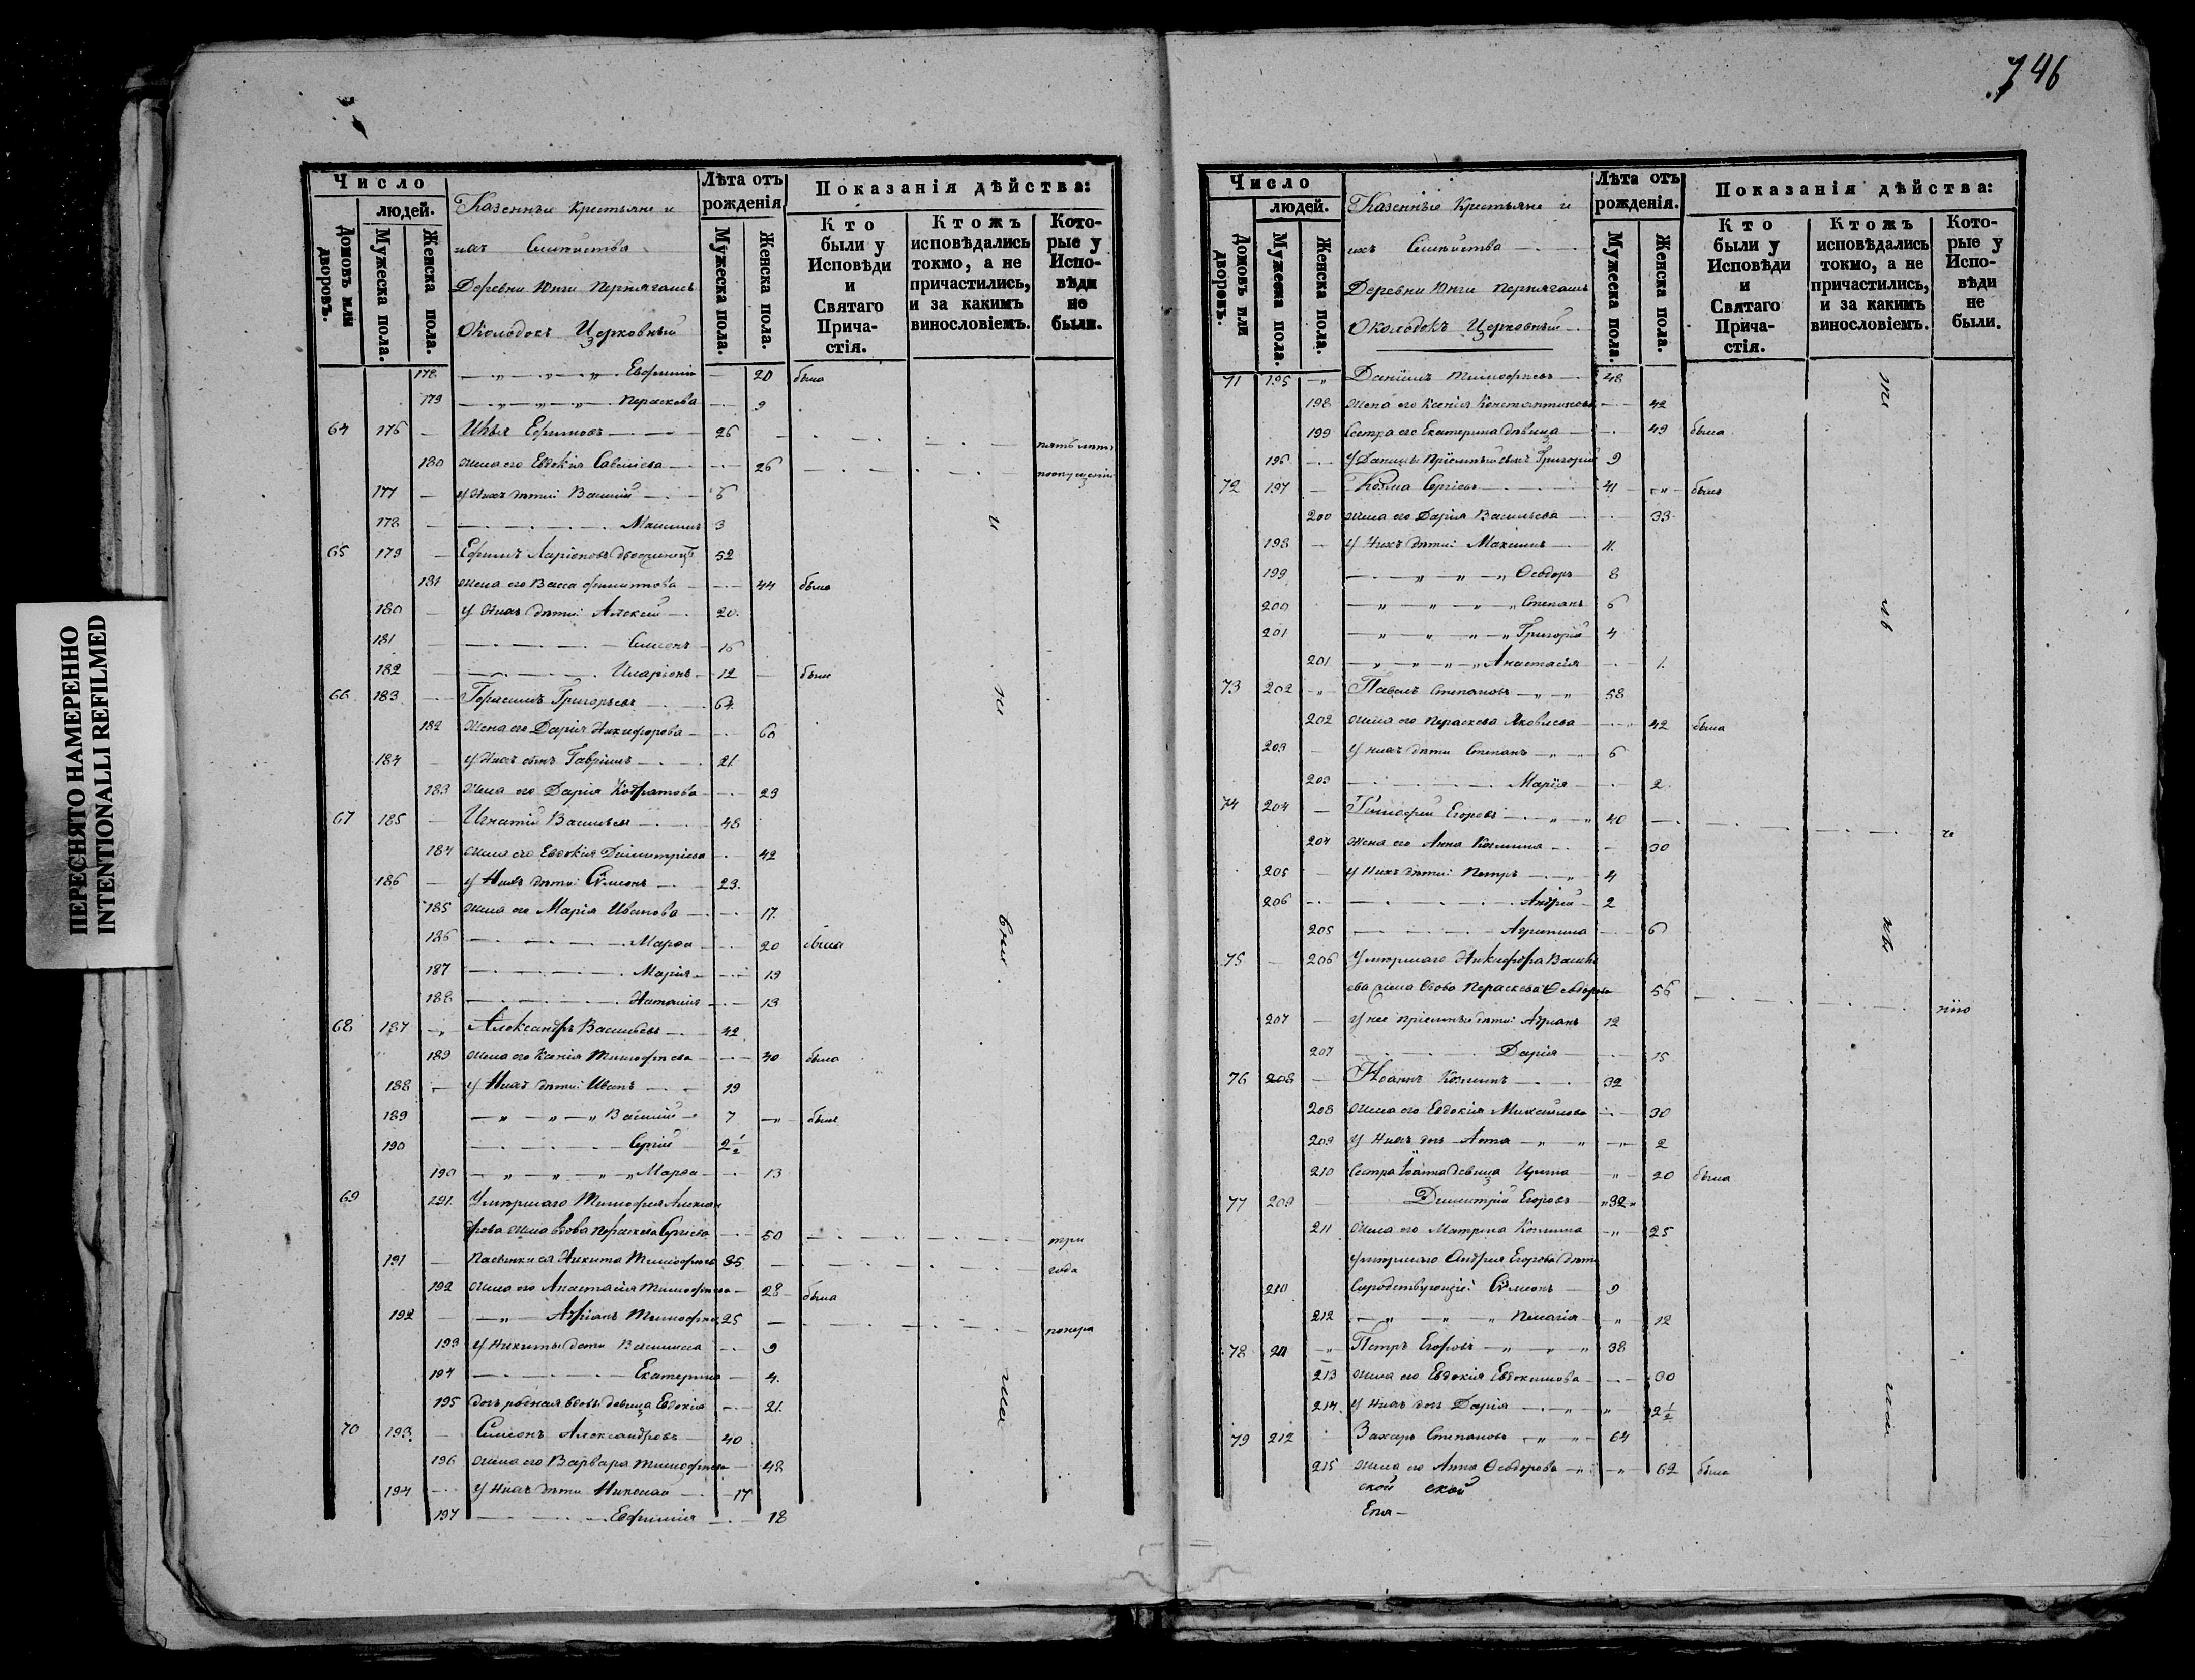 746
ПЕРЕСНЯТО НАМЕРЕННО
INTENTIONALLI REFILMED
Число
людей.
Домовъ или дворовъ.
Мужеска пола.
Женска пола.
Казенные Крестьяне и
ихъ Семейства
Деревни Юнги Пернягашъ
Околодокъ Церковный
Лѣта отъ рожденія
Мужеска пола.
Женска пола.
Показанія дѣйства:
Кто были у Исповѣди и Святаго Прича-стія.
Ктожъ исповѣдались токмо, а не причастились, и за какимъ винословіемъ.
Кото-рые у Испо-вѣди не были.
178 Евфимія 20 была
179 Параскева 9
64 176 Ефимовъ 26
180 жена его Евдокія Савельева 26
177 у нихъ дѣти: Василій 6
178 Максимъ 3
65 179 Ефимъ Ларіоновъ 52
181 жена его Васса Филиппова 44 была
180 у нихъ дѣти: Алексѣй 20
181 Симеонъ 16
182 Иларіонъ 12 былъ
66 183 Герасимъ Григорьевъ 64
182 Жена его Дарія Никифорова 60
184 у нихъ сынъ Гавріилъ 21
183 жена его Дарія Кодратова 23
67 185 Игнатій Васильевъ 48
184 жена его Евдокія Димитріева 42
186 у нихъ дѣти: Симеонъ 23
185 жена его Марія Иванова 17
186 Марѳа 20 была
187 Марія 19
188 Наталія 13
68 187 Александръ Васильевъ 42
189 жена его Ксенія Тимофѣева 40 была
188 у нихъ дѣти: Иванъ 19
189 Василій 7 былъ
190 Сергій 2½
190 Марѳа 13
69 191 Умершаго Тимофея Алексан
дрова жена вдова Параскева Сергіева 50 три
191 Никита Тимофѣевъ 35 года
192 жена его Анастасія Тимофѣева 28 была
192 Адріанъ Тимофѣевъ 25
193 у Никиты дѣти Василиса 9
194 Екатерина 4
195 дочь родная вдовы девица Евдокія 21
70 193 Симеонъ Александровъ 40
196 жена его Варвара Тимофѣева 48
194 у нихъ дѣти Николай 17
197 Евфимія 18
Число
людей.
Домовъ или дворовъ.
Мужеска пола.
Женска пола.
Казенные Крестьяне и
ихъ Семейства
Деревни Юнги Пернягашъ
Околодокъ Церковный
Лѣта отъ рожденія.
Мужеска пола.
Женска пола.
Показанія дѣйства:
Кто были у Исповѣди и Святаго Прича-стія.
Ктожъ исповѣдались токмо, а не причастились, и за какимъ винословіемъ.
Кото-рые у Испо-вѣди не были.
71 195 Даніилъ Тимофѣевъ 48
198 жена его Ксенія Константинова 42
199 Сестра его Екатерина дѣвица 49 была
196 у Даніила Григорій 9
72 197 Козма Сергіевъ 41 былъ
200 жена его Дарія Васильева 33
198 у нихъ дѣти: Максимъ 11
199 Ѳеодоръ 8
200 Степанъ 6
201 Григорій 4
201 Анастасія 1
73 202 Павелъ Степановъ 58
202 жена его Параскева Яковлева 42 была
203 у нихъ дѣти Степанъ 6
203 Марія 2
74 204 Тимофѣй Егоровъ 40
204 жена его Анна Козмина 30
205 у нихъ дѣти: Петръ 4
206 Андрей 2
205 Агрипина 6
75 206 Умершаго Никифора Василь
ева жена вдова Параскева Ѳеодорова 56
207 у нее дѣти: Адріанъ 12
207 Дарія 15
76 208 Іоаннъ Козминъ 32
208 жена его Евдокія Михайлова 30
209 у нихъ дочь Анна 2
210 Сестра Іоанна девица Ирина 20 была
77 209 Димитрій Егоровъ 32
211 жена его Матрена Козмина 25
умершаго Андрея Егорова дѣти
210 Симеонъ 9
212 Пелагія 12
78 211 Петръ Егоровъ 38
213 жена его Евдокія Евдокимова 30
214 у нихъ дочь Дарія 2½
79 212 Захаръ Степановъ 64
215 жена его Анна Ѳеодорова 62 была